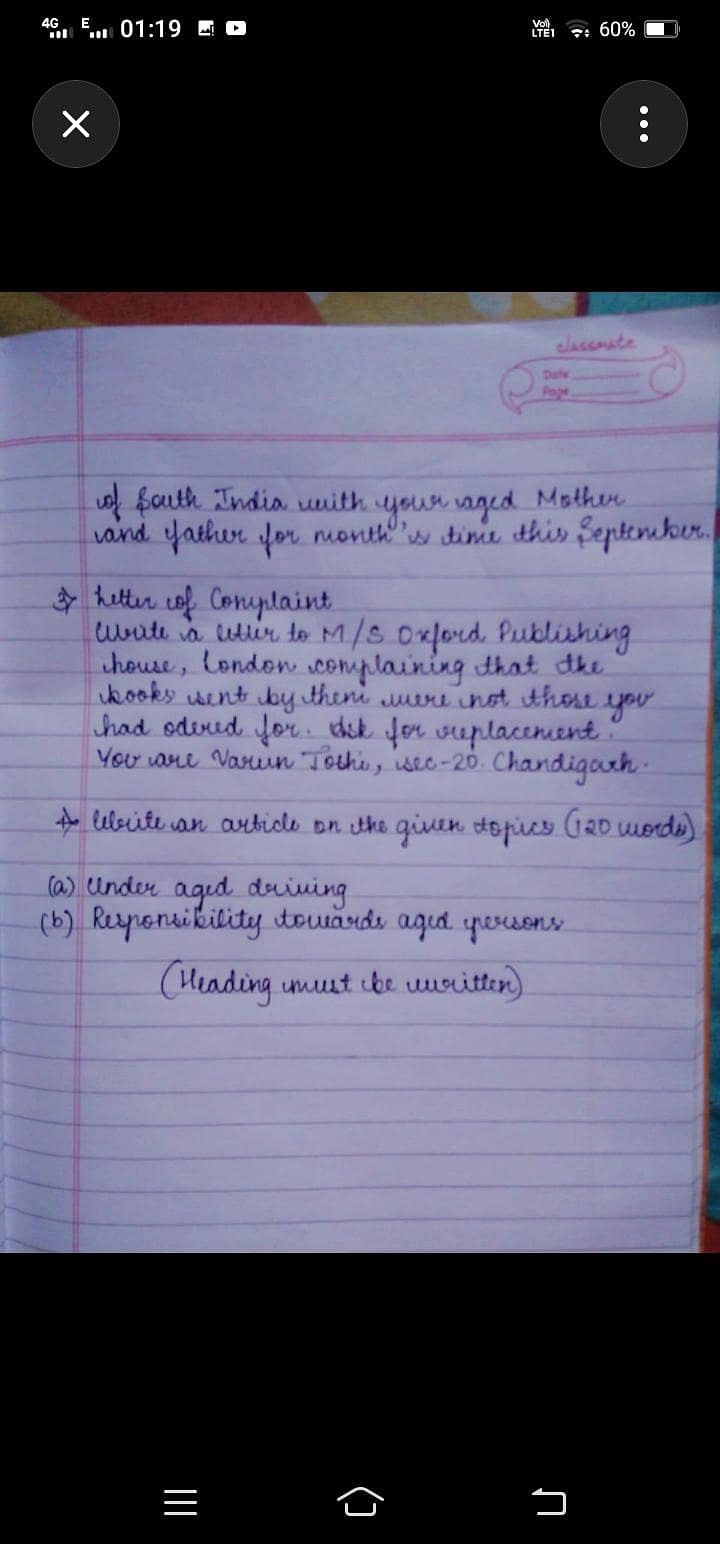 4G E 01:19 Vo) LTE1 60%
classmate
Date
Page
of South India with your aged Mother
and father for month's time this September.
3) Letter of Complaint
Write a letter to M/S Oxford Publishing
house, London complaining that the
books sent by them were not those you
had odered for. Ask for replacement.
You are Varun Joshi, sec-20. Chandigarh.
4) Write an article on the given topics (120 words)
(a) Under aged driving
(b) Responsibility towards aged persons
(Heading must be written)